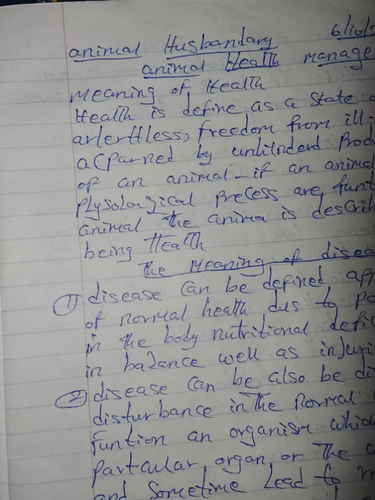 animal Husbandary 6/10/
animal Health manage
meaning of Health
Health is define as a state o
arlerttless, freedom from ill-
acparned by unhilnderd prod
of an animal - if an animal
Plysological process are funt
animal the anima is describ
being Health
The meaning of disea
① disease can be defined app
of normal health dus to pa
in the body nutritional defic
in balance well as injuri
② disease can be also be di
disturbance in the normal
funtion an organism which
partcular organ or the
and sometime lead to re